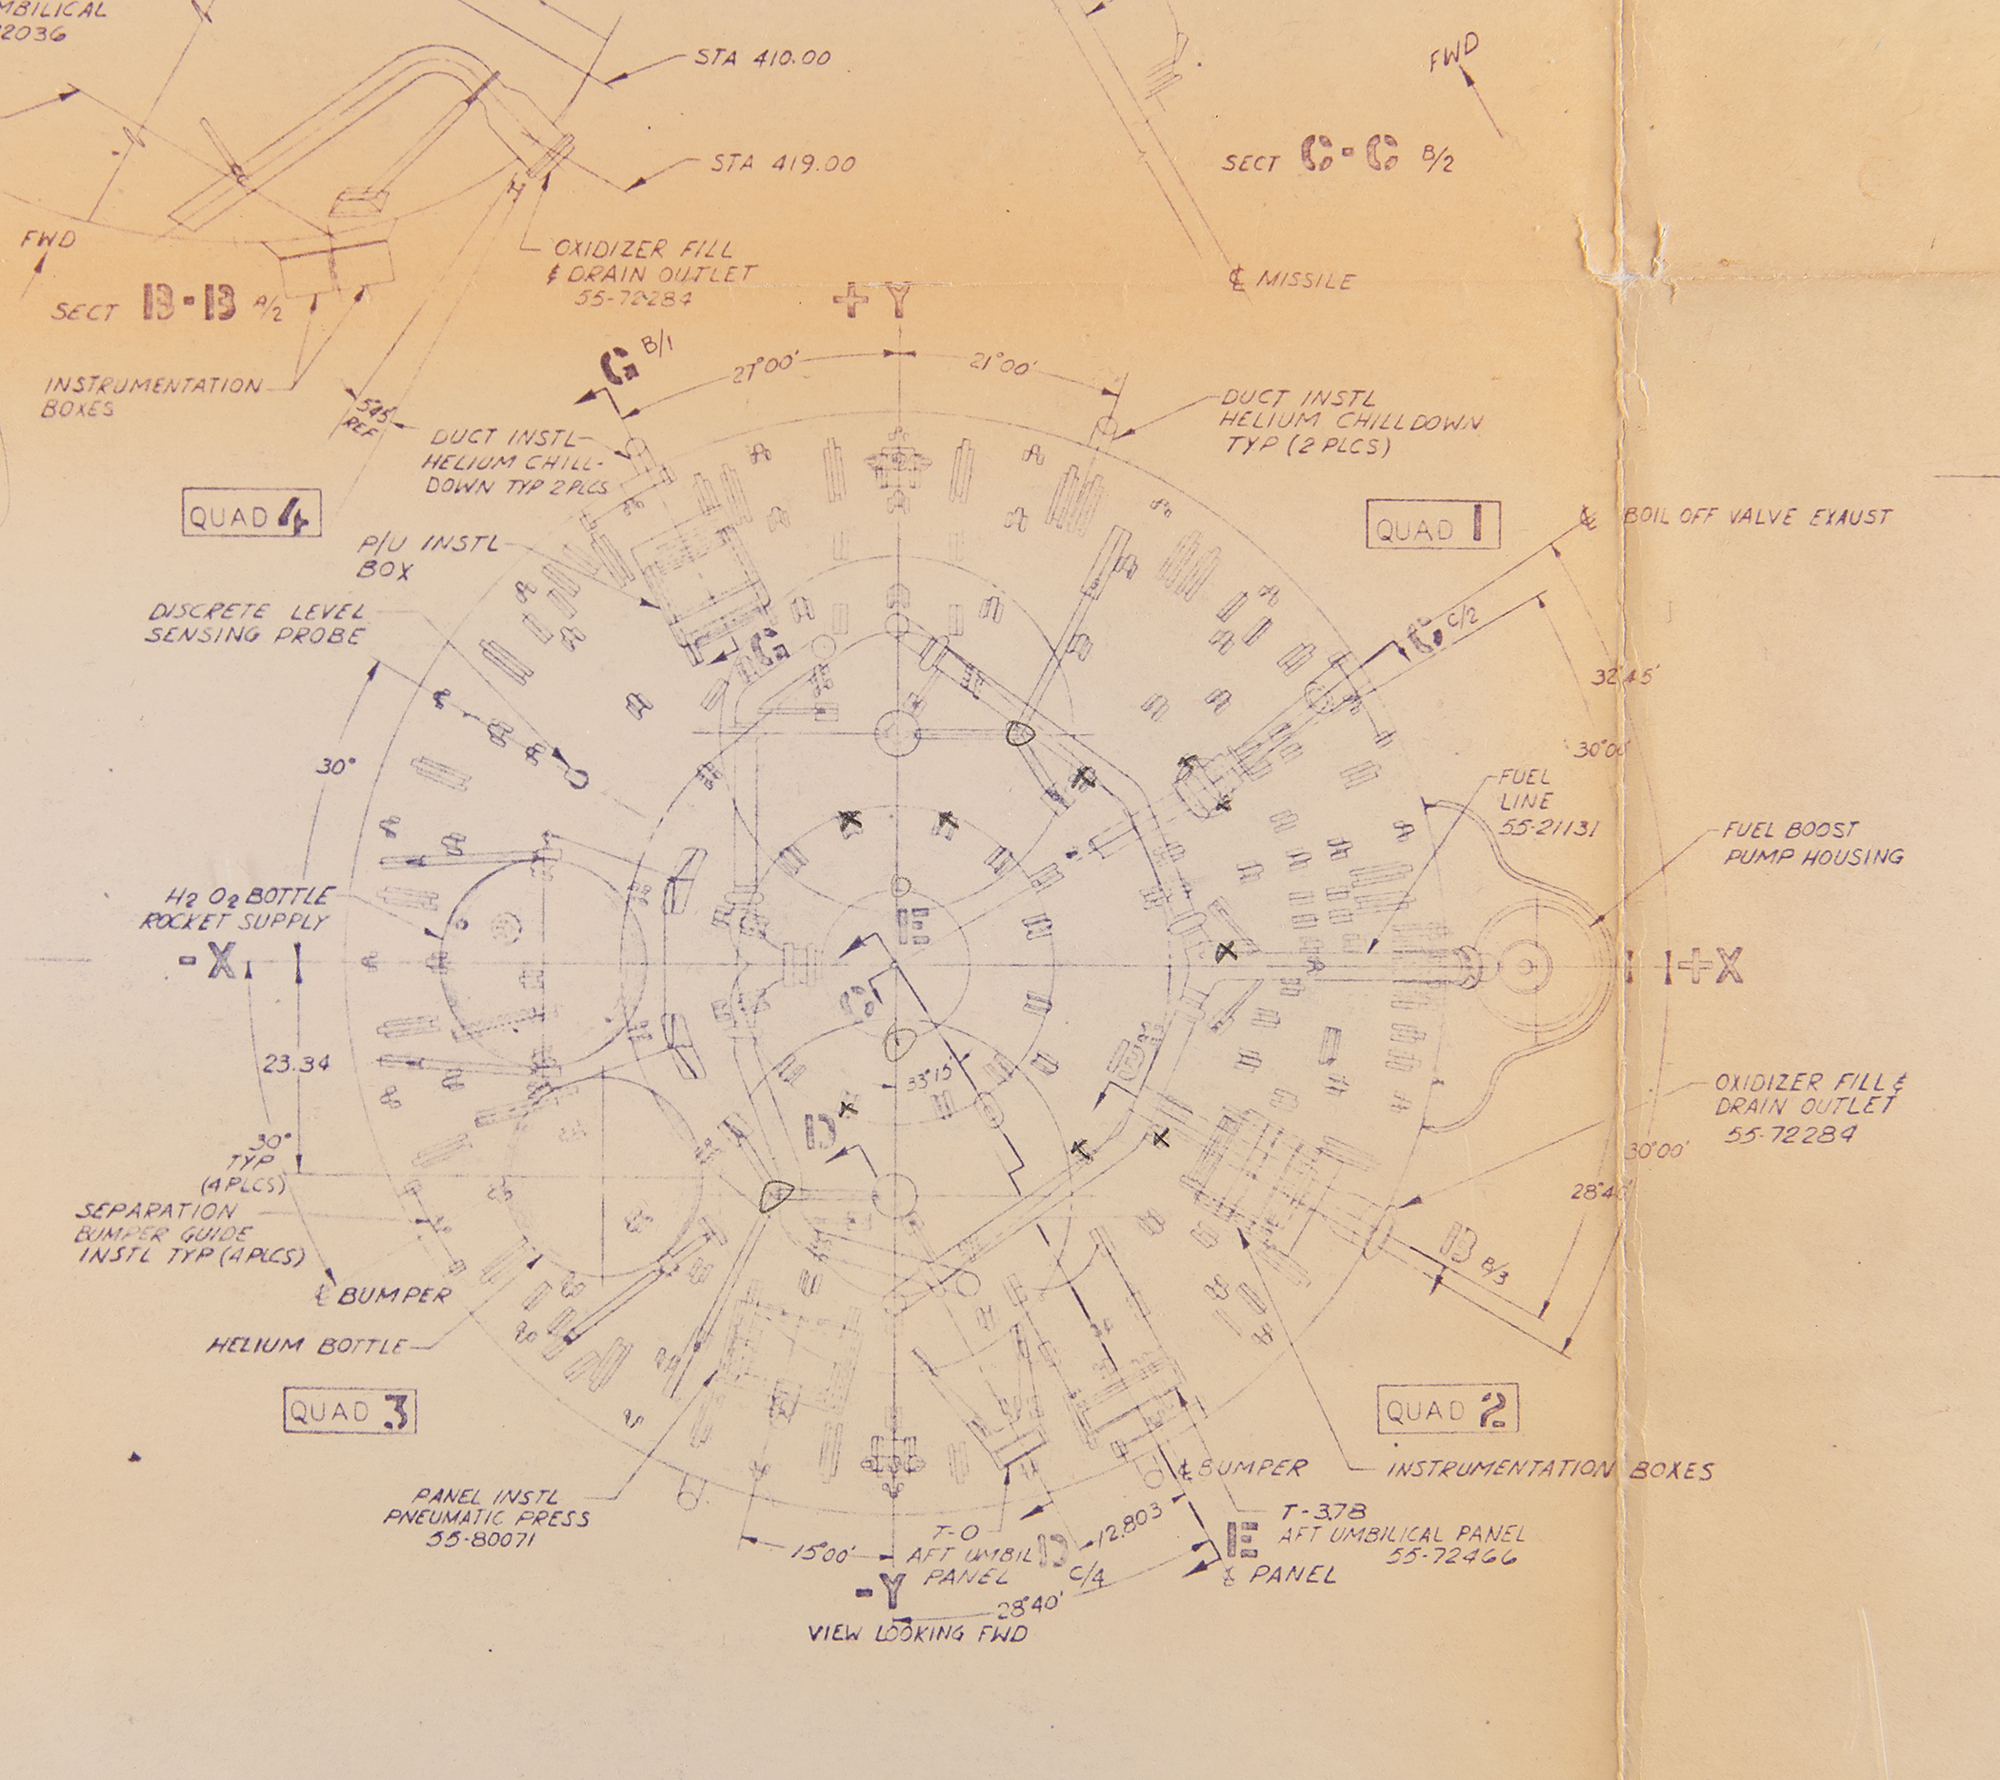 MBILICAL
2036
STA 410.00
FWD
SECT C-C B/2
STA 419.00
FWD
OXIDIZER FILL
& DRAIN OUTLET
55-72284
SECT B-B A/2
+Y
℄ MISSILE
G B/1
27°00'
21°00'
INSTRUMENTATION
BOXES
REF
DUCT INSTL
HELIUM CHILLDOWN
TYP (2 PLCS)
DUCT INSTL
HELIUM CHILL-
DOWN TYP 2 PLCS
QUAD 4
QUAD 1
℄ BOIL OFF VALVE EXAUST
P/U INSTL
BOX
DISCRETE LEVEL
SENSING PROBE
G
C C/2
32°45'
30°00'
30°
FUEL
LINE
55-21131
FUEL BOOST
PUMP HOUSING
H2 O2 BOTTLE
ROCKET SUPPLY
E
-X
+X
C
23.34
33°15'
B
OXIDIZER FILL &
DRAIN OUTLET
55-72284
D
30°
TYP
(4 PLCS)
30°00'
SEPARATION
BUMPER GUIDE
INSTL TYP (4 PLCS)
B B/3
℄ BUMPER
HELIUM BOTTLE
QUAD 3
QUAD 2
℄ BUMPER
INSTRUMENTATION BOXES
PANEL INSTL
PNEUMATIC PRESS
55-80071
T-0
AFT UMBIL
PANEL
D
C/4
12.803
T-3.78
AFT UMBILICAL PANEL
55-72466
E
℄ PANEL
15°00'
-Y
28°40'
VIEW LOOKING FWD